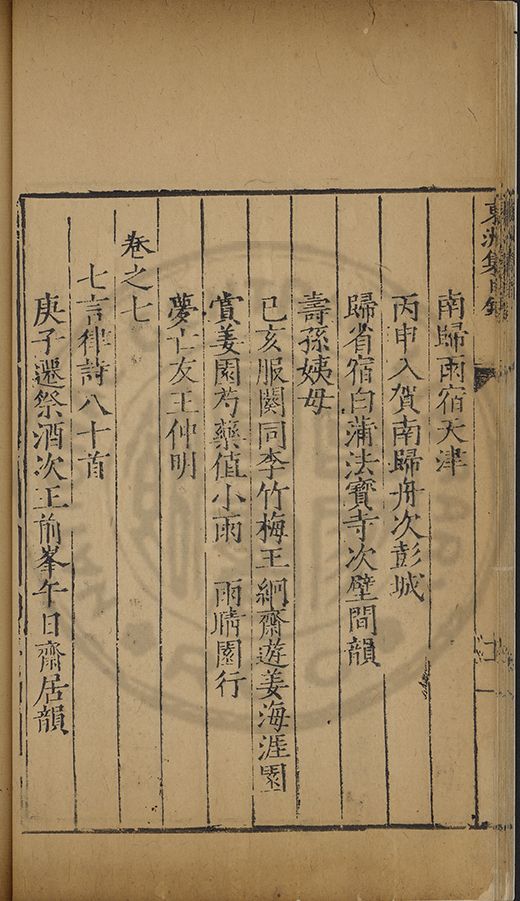 東洲集目錄
南歸雨宿天津
丙申入賀南歸舟次彭城
歸省宿白蒲法寶寺次壁間韻
壽孫姨母
己亥服闋同李竹梅王絅齋遊姜海涯園
賞姜園芍藥值小雨 雨晴園行
夢亡友王仲明
卷之七
七言律詩八十首
庚子還祭酒次王前峯午日齋居韻